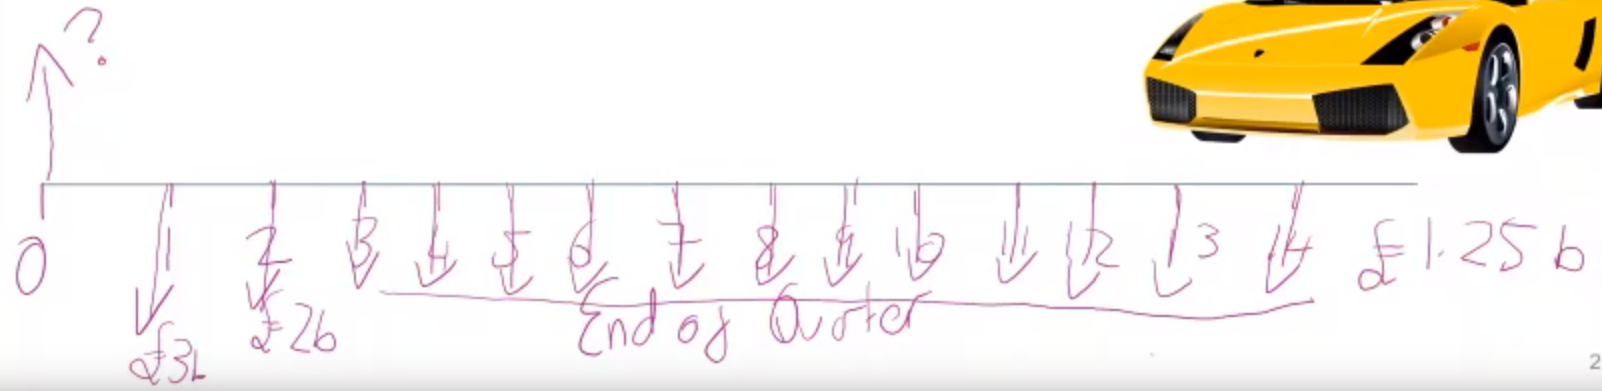 ?
0 1 2 3 4 5 6 7 8 9 10 11 12 13 14 £1.25b
£3b £2b End of Quarter
2